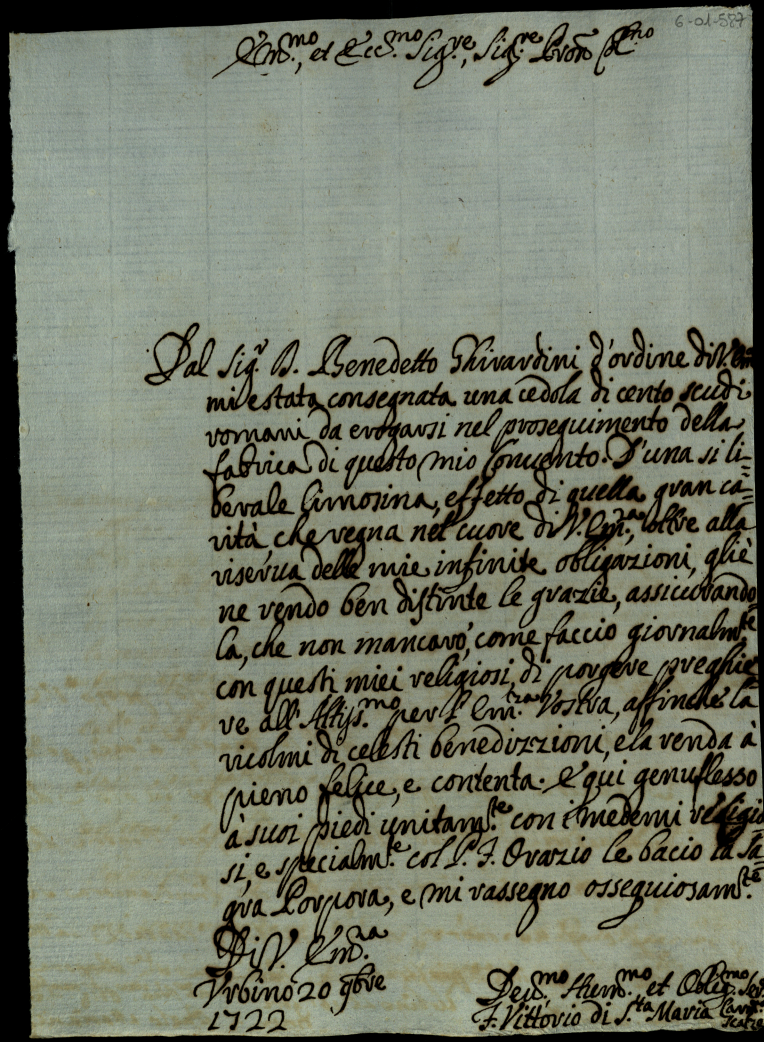 6-01-587
Em.mo, et Ecc.mo Sig.re, Sig.re Pron Col.mo
Dal Sig.r D. Benedetto Ghirardini d'ordine di V. Em
mi è stata consegnata una cedola di cento scudi
romani da erogarsi nel proseguimento della
fabrica di questo mio Convento. D'una si li=
berale limosina, effetto di quella gran ca=
rità, che regna nel cuore di V. Em.za, oltre alla
riserva delle mie infinite obligazioni, gliè
ne rendo ben distinte le grazie, assicurando
la, che non mancarò, come faccio giornalm.te
con questi miei religiosi, di porgere preghie
re all'Altiss.mo per l'Em.za Vostra, affinche la
ricolmi di celesti benedizzioni, e la renda à
pieno felice, e contenta. E qui genuflesso
à suoi piedi unitam.te con i medemi religio
si, e specialm.te col P. F. Orazio le bacio la Sa=
gra Porpora, e mi rassegno ossequiosam.te
Di V. Em.za
Urbino 20 9bre
1722
Dev.mo Hum.mo et Oblig.mo Ser
F. Vittorio di S.ta Maria Carm. Scalzo